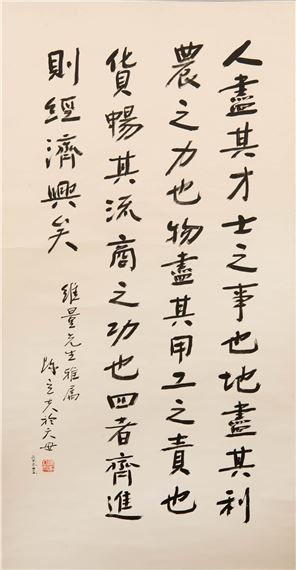 人盡其才士之事也地盡其利
農之力也物盡其用工之責也
貨暢其流商之功也四者齊進
則經濟興矣
維量先生雅屬
陳立夫於天母